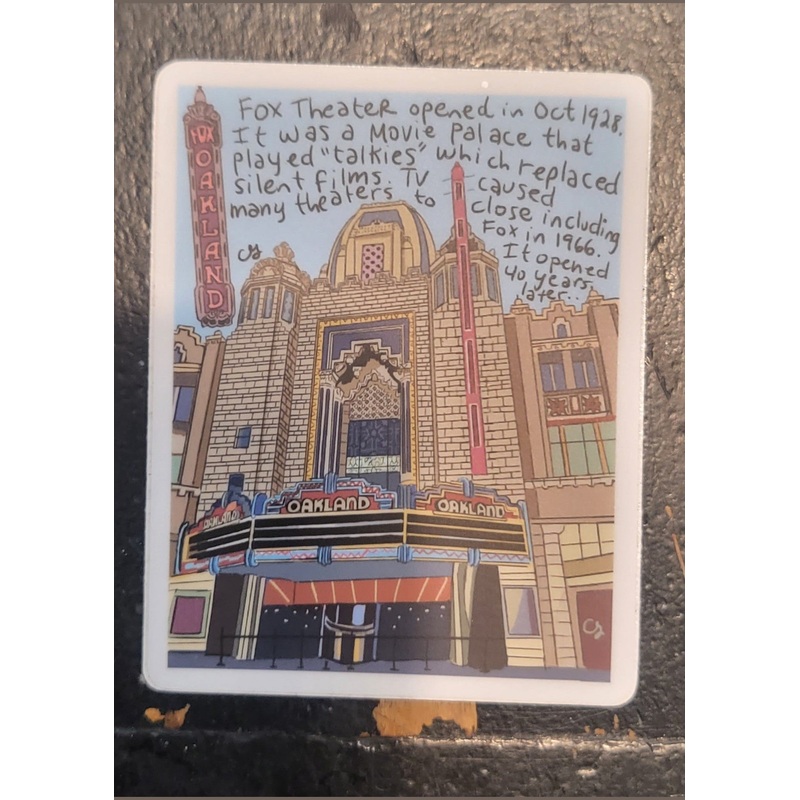 Fox Theater opened in Oct 1928.
It was a Movie Palace that
played "talkies" which replaced
silent films. TV caused
many theaters to close including
Fox in 1966.
It opened
40 years
later...
cg
FOX
OAKLAND
OAKLAND
OAKLAND
OAKLAND
cg